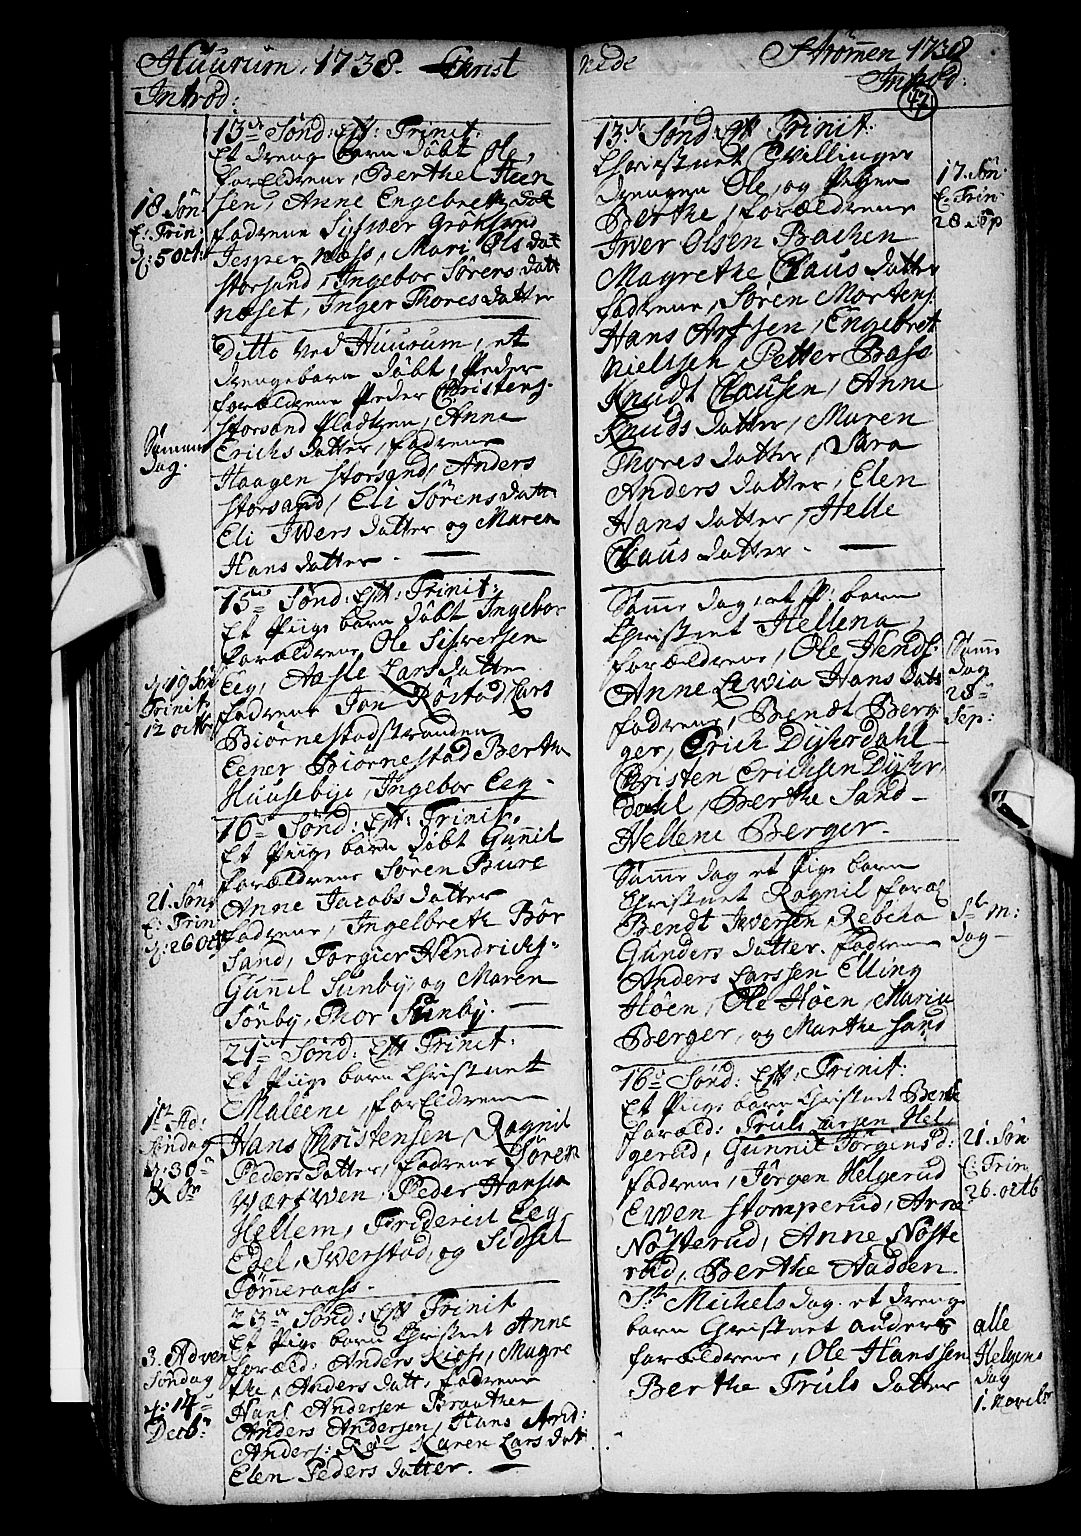 Huurum, 1738. Christ
Introd:
13de Sønd: Eft: Trinit:
Et drenge barn døbt Ole,
forældrene, Berthel Steen
sen, Anne Engebreths dat
fadrene Sifwer Grøhsund
Jesper Næss, Mari Ols dat
storsand, Ingebor Sørens datt
næset, Inger Thores datter
18 Søn:
E: Trin:
d: 5 Oct:
Ditto ved Huurum, et
drengebarn døbt, Peder
forældrene Peder Christens:
storsand fladtren, Anne
Erichs datter, fadrene
Haagen storsand, Anders
storsand, Eli Sørens datt
Eli Iwers datter og Maren
Hans datter.
Samme
dag.
15de Sønd: Eft: Trinit:
Et Piige barn døbt Ingebor
forældrene Ole Sifversen
Eeg, Aasle Lars datter
fadrene Jon Røstad, Lars
Biørnestadstranden
Eener Biørnestad Berthe
Huusebye, Ingebor Eeg.
d: 19 Søn
Trinit
12 octb
16de Sønd: Eft: Trinit.
Et Piige barn døbt Gunnil
forældrene Søren Bure
Anne Jacobs datter
fadrene, Ingelbreth Bør
Sand, Torgier Hendrichs:
Gunil Sunby, og Maren
Sønby, Thor Sunby.
21. Søn
E: Trin
d: 26 Oct
21de Sønd: Eft Trinit:
Et Piige barn Christnet
Maleene, forældrene
Hans Christensen, Ragnil
Peders datter, fadrene Søren
Værfwen, Peder Hansen
Hellem, Friderich Eeg
Edel, Swerstad, og Sidsel
Tømmeraass.
1te Ad:
søndag
d: 30
23de Sønd: Eft Trinit
Et Piige barn Christnet Anne
foræld: Anders Kiøs, Magre
the, Anders datt, fadrene
Hans Andersen Braathen
Anders Andersen, Hans Arnt:
Anders: Røe Karen Lars dat
Elen Peders datter.
3. Adven
søndag
d: 14
Decb:
nede Strømen 1738
Introd:
47
13de Sønd: Eft Trinit:
Christnet Tvillinger
drengen Ole, og Pigen
Berthe, forældrene
Iwer Olsen Bachen
Magrethe Claus datter
fadrene, Søren Mortens:
Hans Arfsen, Engebret
Nielssen, Petter Bass
Knudt Clausen, Anne
Knuds datter, Maren
Thores datter, Sara
Anders datter, Elen
Hans datter, Helle
Claus datter.
17. Søn:
E: Trin
28 Sep
Samme dag, et P: barn
Christnet Hellena,
forældrene, Ole Hends:
Anne Lewia Hans datt
fadrene, Bendt Berg
ger, Erich Dyhrdahl
Christen Erichsen Dyhr
dahl, Berthe Sand
Hellene Berger.
Samme
dag
28
Sep:
Samme dag et Pige barn
Christnet Ragnil foræl
Bendt Iwersen, Rebeka
Gunders datter. fadrene
Anders Larssen Elling
Høen, Ole Høen, Maria
Berger, og Marthe sand
dag
16de Sønd: Eft: Trinit:
Et Piige barn Christnet Berthe
foræld: Truls Larsen Hel
gerud, Gunnil Jørgens d:
fadrene, Jørgen Helgerud
Ewen stomperud, Arne
Nøsterud, Anne Nøste
rud, Berthe Hadden
21. Søn
E: Trin
26. octb
St Michels dag et drenge
barn Christnet anders
forældrene, Ole Hanssen
Berthe Truls datter
alle
Helgens
dag
1. Novebr